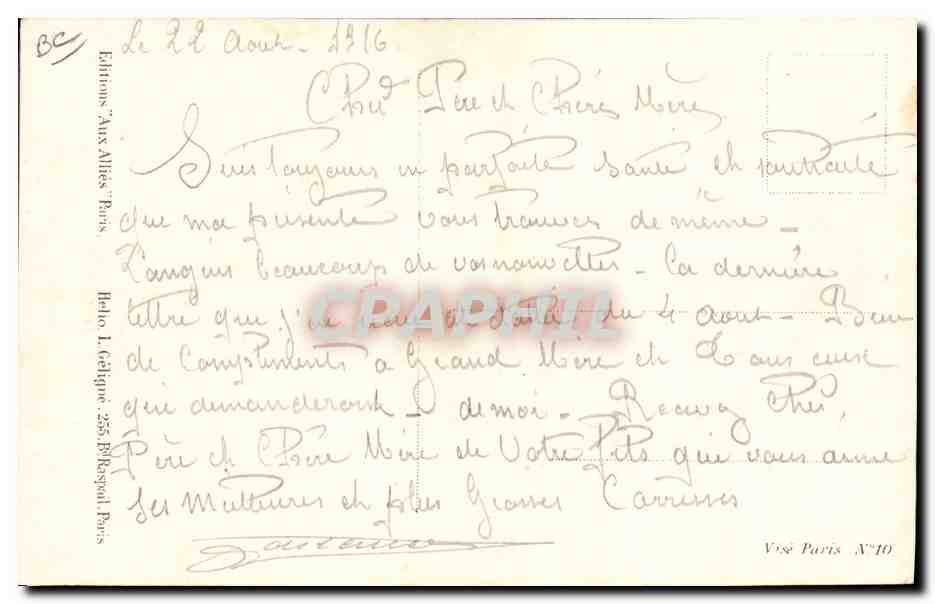 BC
Le 22 Aout. 1916.
Cher Père et Chère Mère
Suis toujours en parfaite santé et souhaite
que ma présente vous trouves de même -
Languis beaucoup de vos nouvelles - la dernière
lettre que j'ai daté du 4 aout - Bien
de Compliments a Grand Mère et Tous ceux
qui demanderont - de moi - Recevez Cher
Père et Chère Mère de Votre Fils qui vous aime
ses Meilleures et plus Grosses Carresses
Editions "Aux Alliés" Paris.
Hélio. L. Géligné. 255, Bd Raspail. Paris
Visé Paris Nº 10
CPAPHIL